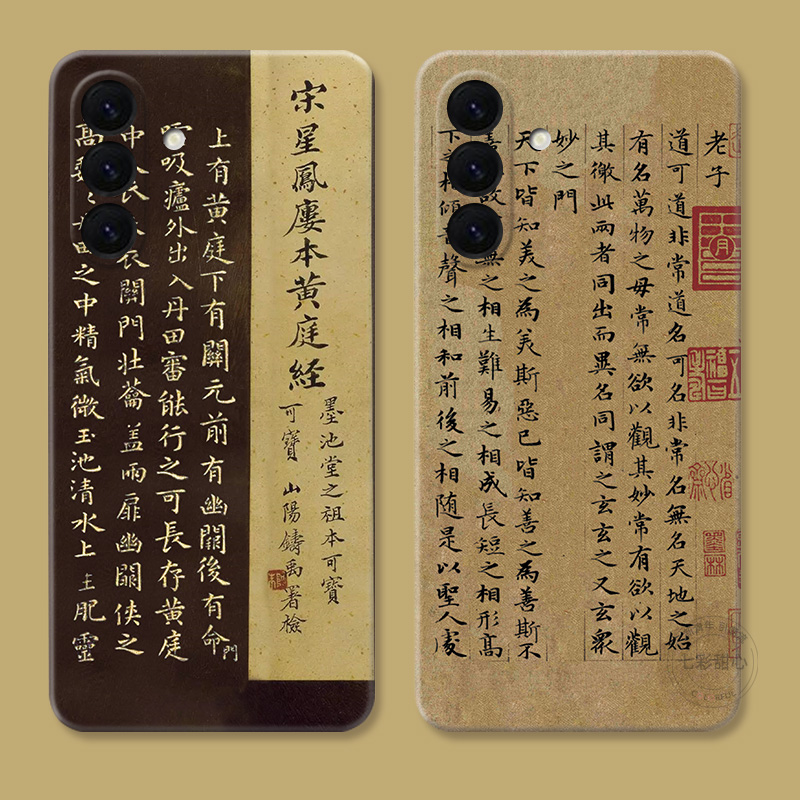 宋星鳳廔本黄庭經
墨池堂之祖本可寶
可寶 山陽鑄禹署檢
上有黄庭下有關元前有幽闕後有命門
吸廬外出入丹田審能行之可長存黄庭
中衣關門壯籥蓋兩扉幽闕俠之
高田之中精氣微玉池清水上主肥靈
老子
道可道非常道名可名非常名無名天地之始
有名萬物之母常無欲以觀其妙常有欲以觀
其徼此兩者同出而異名同謂之玄玄之又玄衆
妙之門
天下皆知美之為美斯惡已皆知善之為善斯不
善故無之相生難易之相成長短之相形高
下相傾音聲之相和前後之相随是以聖人處
七彩甜心